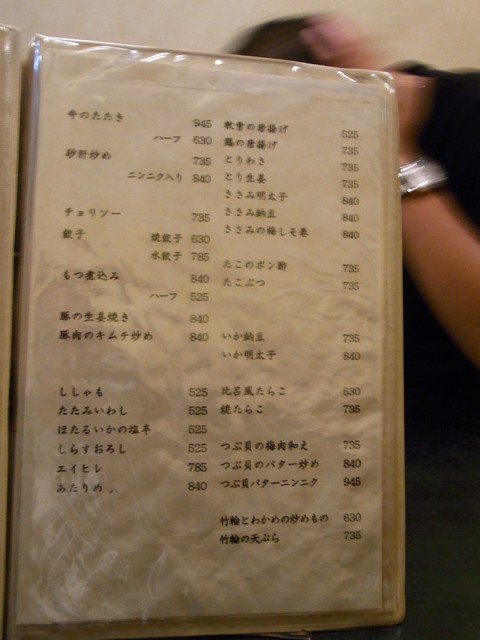 牛のたたき 945
ハーフ 630
砂肝炒め 735
ニンニク入り 840
チョリソー 735
餃子 焼餃子 630
水餃子 785
もつ煮込み 840
ハーフ 525
豚の生姜焼き 840
豚肉のキムチ炒め 840
ししゃも 525
たたみいわし 525
ほたるいかの塩辛 525
しらすおろし 525
エイヒレ 785
あたりめ 840
軟骨の唐揚げ 525
鶏の唐揚げ 735
とりわさ 735
とり生姜 735
ささみ明太子 840
ささみ納豆 840
ささみの梅しそ巻 840
たこのポン酢 735
たこぶつ 735
いか納豆 735
いか明太子 840
比呂風たらこ 630
焼たらこ 735
つぶ貝の梅肉和え 735
つぶ貝のバター炒め 840
つぶ貝バターニンニク 945
竹輪とわかめの炒めもの 630
竹輪の天ぷら 735